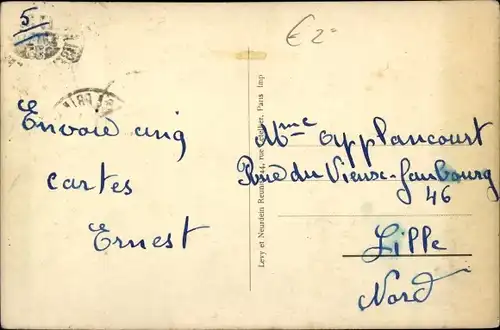 5
€ 2-
Envoie cinq
cartes
Ernest
Levy et Neurdein Reunis, 44, rue Letellier, Paris Imp
Mme Applancourt
Rue du Vieux-Faubourg
46
Lille
Nord